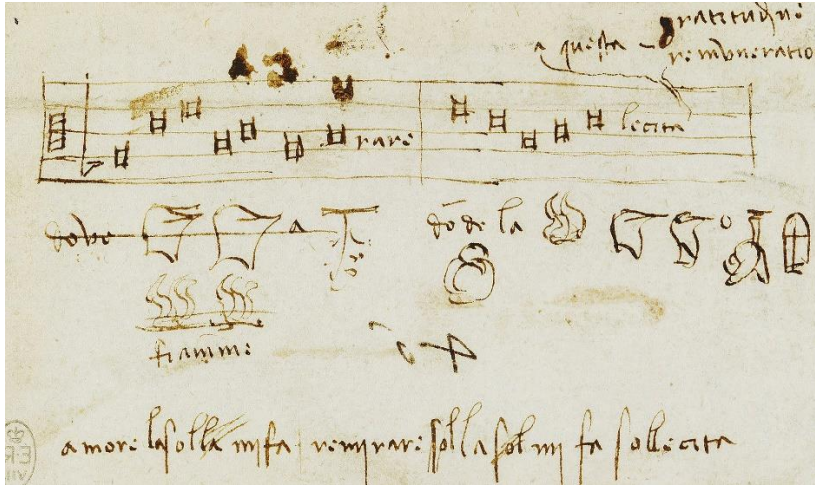 gratitudine
a questa remuneratio
rare lecita
dove a dōde la
fiamme
amore la sol la mi fa remirare sol la sol mi fa sollecita